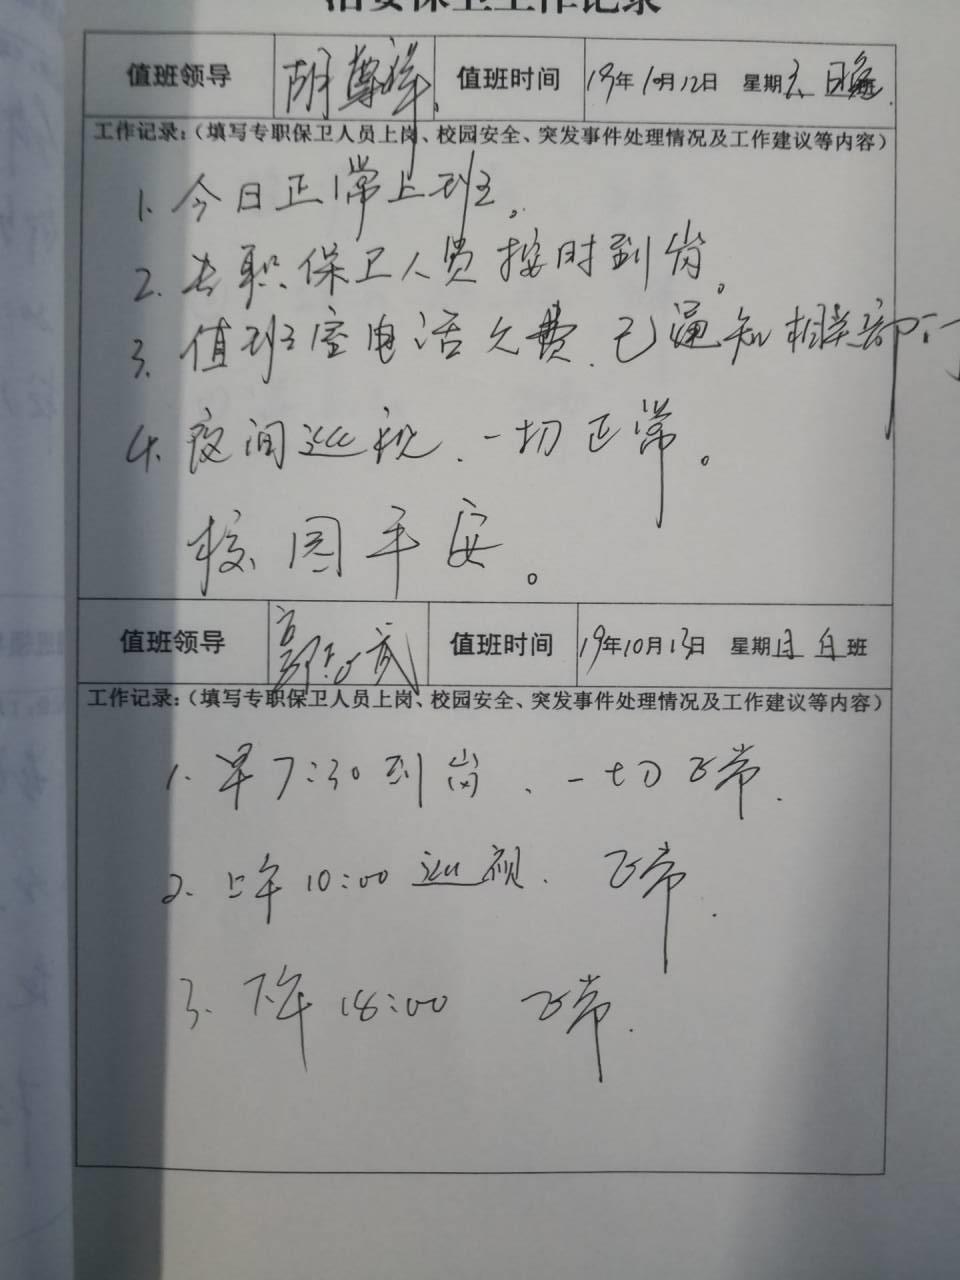 治安保卫工作记录
值班领导 胡尊祥 值班时间 19年10月12日 星期六 晚班
工作记录:(填写专职保卫人员上岗、校园安全、突发事件处理情况及工作建议等内容)
1. 今日正常上班。
2. 专职保卫人员按时到岗。
3. 值班室电话欠费、已通知相关部门
4. 夜间巡视、一切正常。
校园平安。
值班领导 值班时间 19年10月13日 星期日 白班
工作记录:(填写专职保卫人员上岗、校园安全、突发事件处理情况及工作建议等内容)
1. 早7:30到岗、一切正常.
2. 上午10:00巡视. 正常.
3. 下午18:00 正常.